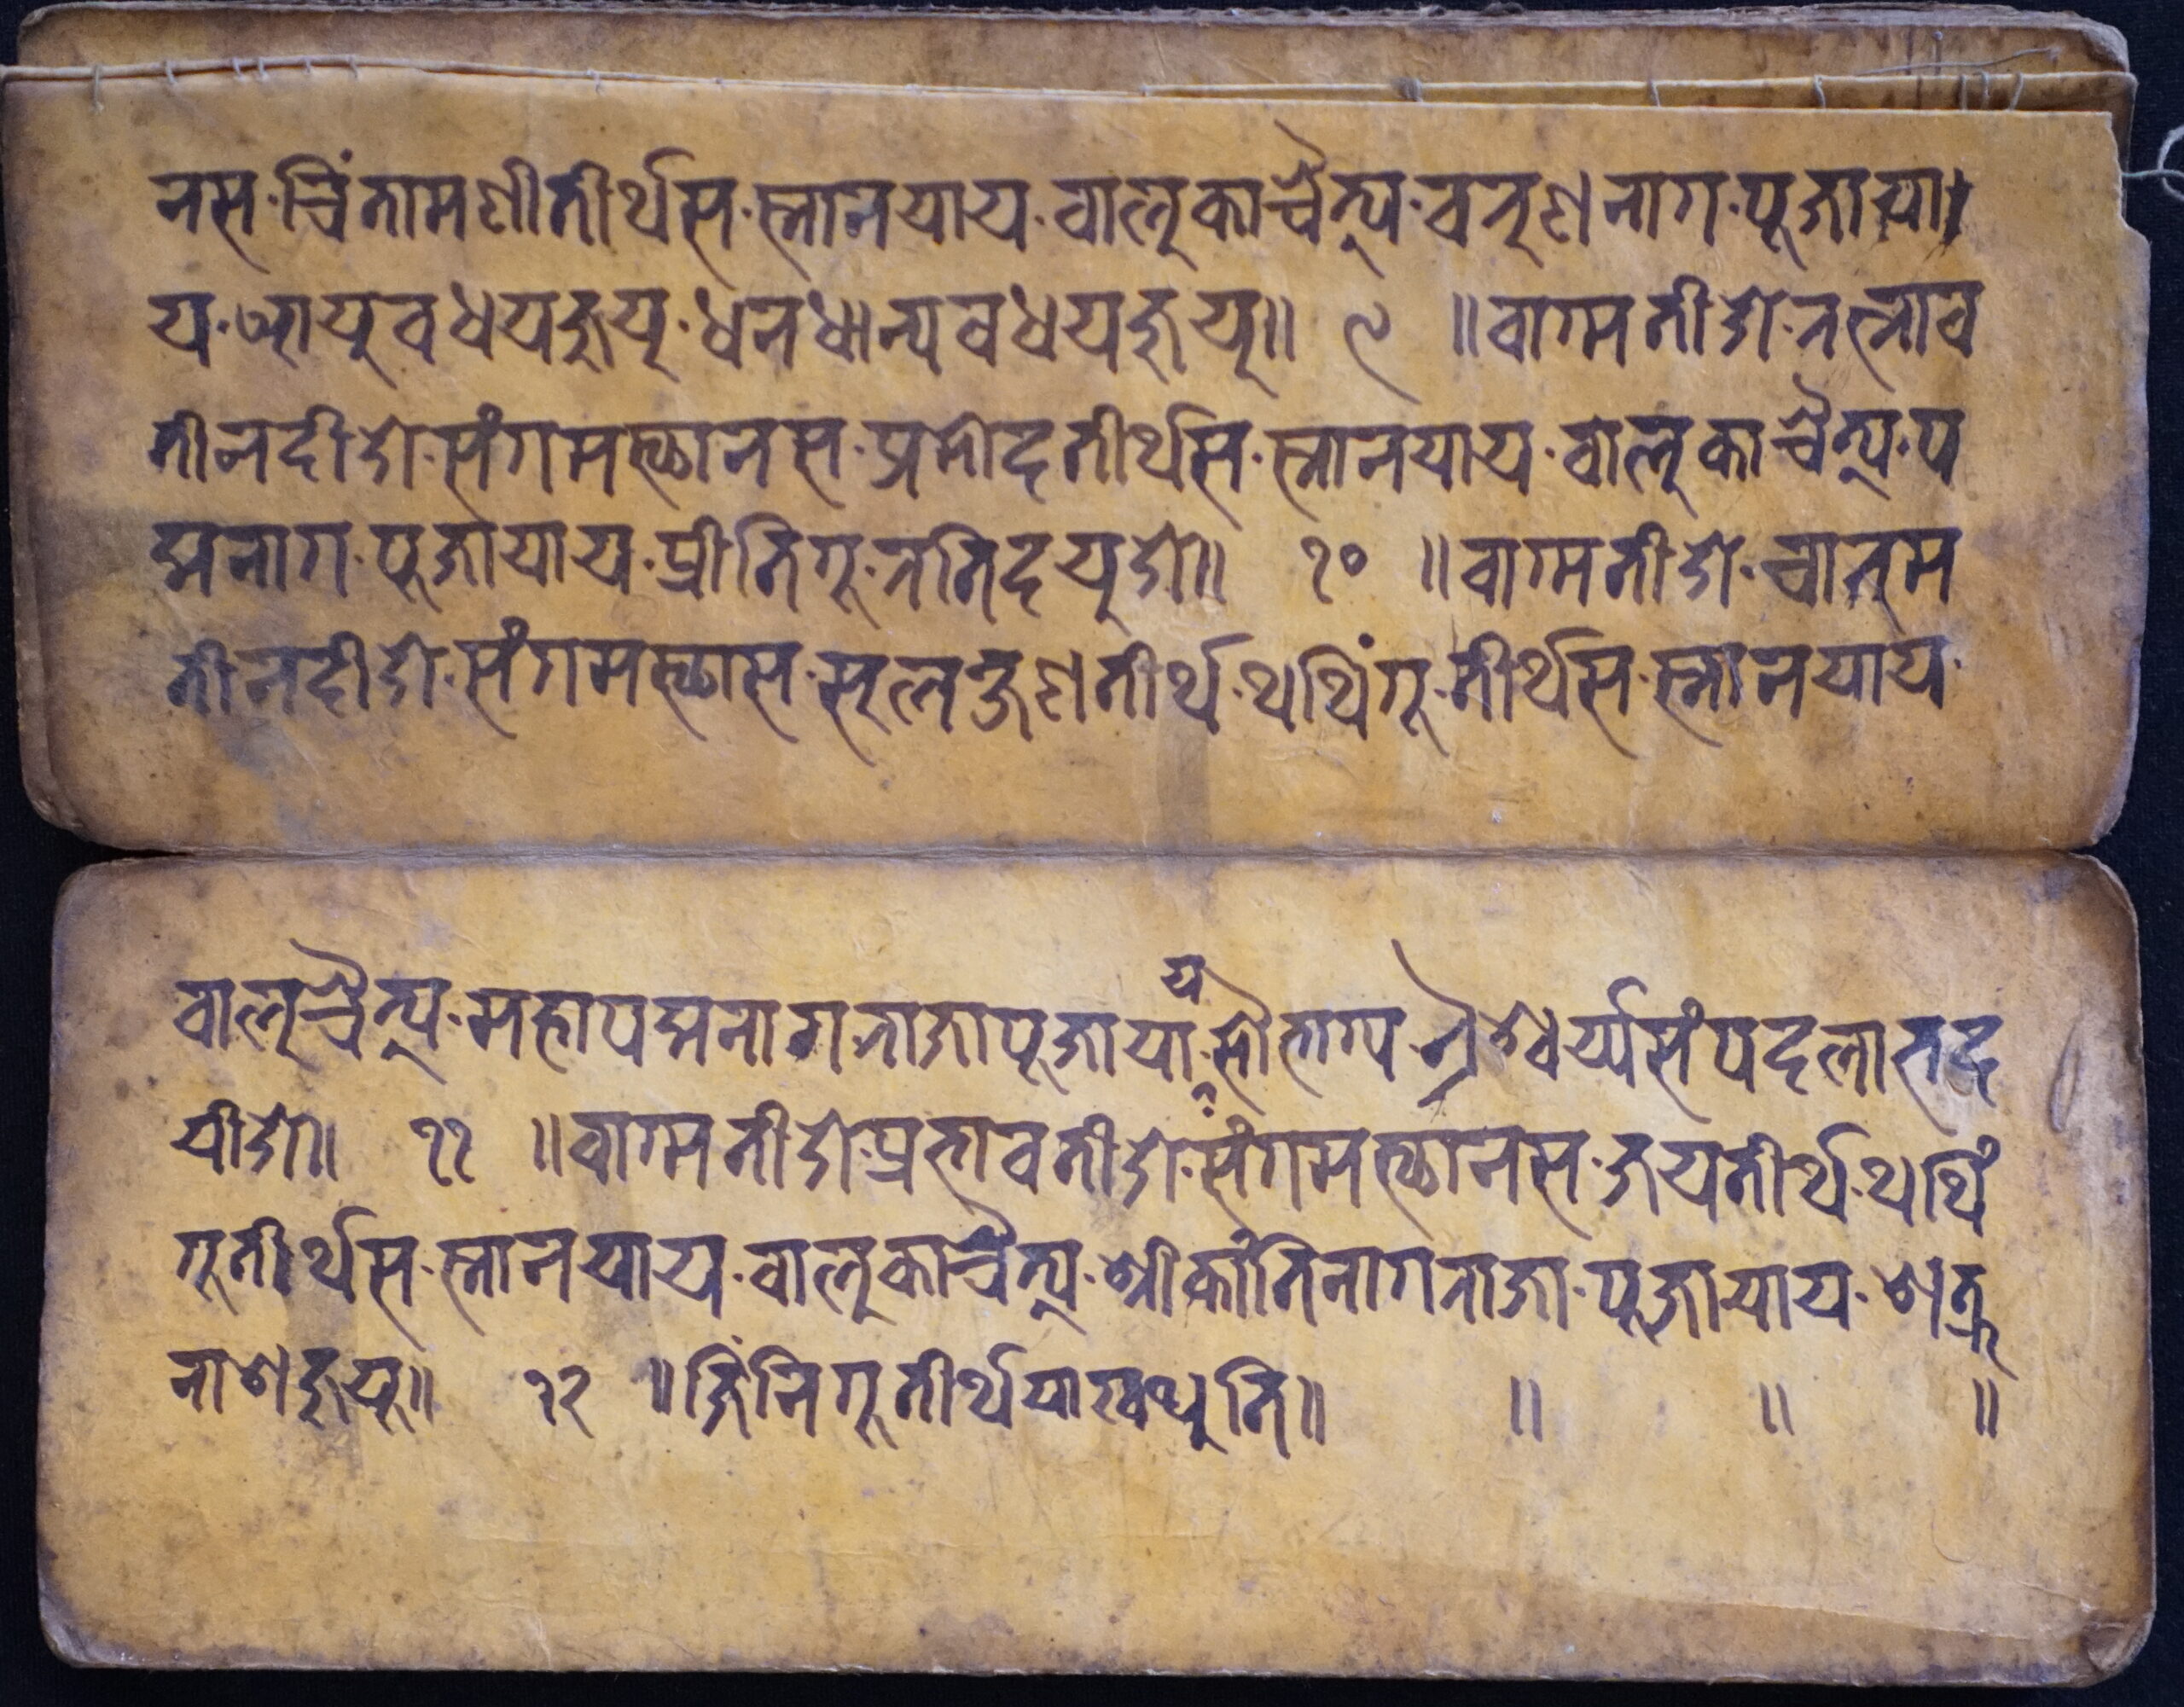 नस·चिंतामणीतीर्थस·स्नानयाय·वालुकाचैत्य·वरुणनाग·पूजाया।
य·आयुवधयजुयू·धनधान्यवधयजुयू॥ ९ ॥वाग्मतीओ·रत्नाव
तीनदीओ·संगमस्थानस·प्रमोदतीर्थस·स्नानयाय·वालुकाचैत्य·प
द्मनाग·पूजायाय·प्रीतिगू·रतिदयुओ॥ १० ॥वाग्मतीओ·चारुम
तीनदीओ·संगमस्थास·सुलक्षणतीर्थ·थथिंगू·तीर्थस·स्नानयाय·
वालुचैत्य·महापद्मनागराजापूजायाय·सौभाग्य·ऐश्वर्य्यसंपदलाभद
यीओ॥ ११ ॥वाग्मतीओ·प्रभावतीओ·संगमस्थानस·जयतीर्थ·थथिं
गूतीर्थस·स्नानयाय·वालुकाचैत्य·श्रीकांतिनागराजा·पूजायाय·शत्रू
नाशजुयू॥ १२ ॥झिंनिगूतीर्थयाखँथुति॥ ॥ ॥ ॥